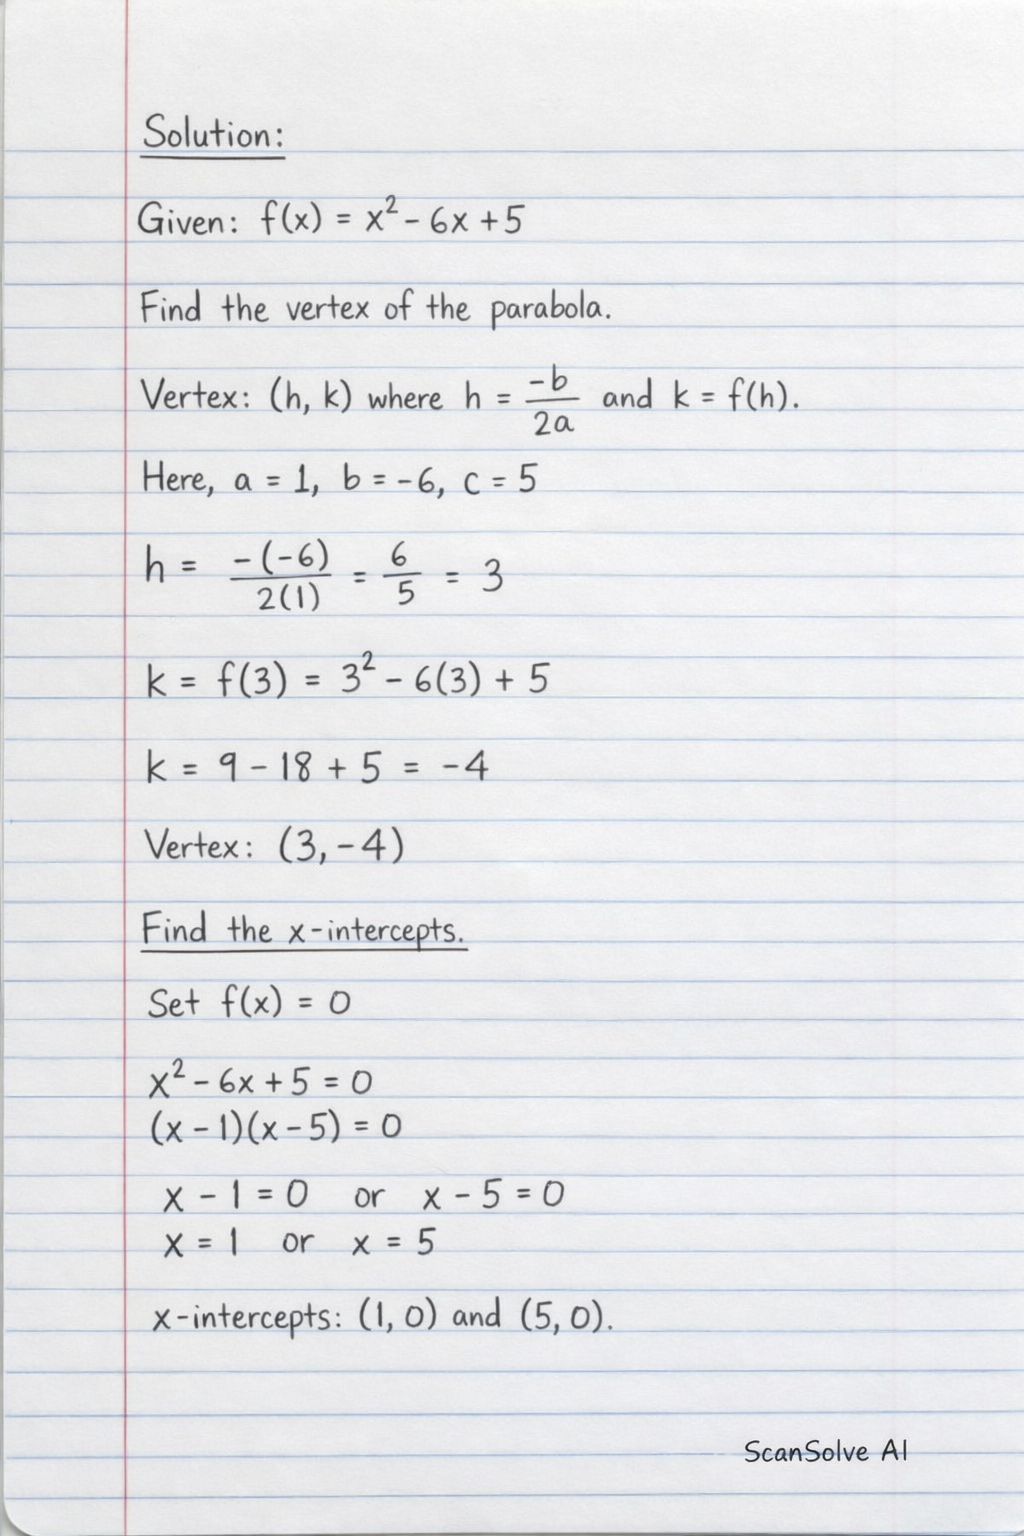 Solution:
Given: f(x) = x² - 6x + 5
Find the vertex of the parabola.
Vertex: (h, k) where h = -b/2a and k = f(h).
Here, a = 1, b = -6, c = 5
h = -(-6)/2(1) = 6/5 = 3
k = f(3) = 3² - 6(3) + 5
k = 9 - 18 + 5 = -4
Vertex: (3, -4)
Find the x-intercepts.
Set f(x) = 0
x² - 6x + 5 = 0
(x - 1)(x - 5) = 0
x - 1 = 0 or x - 5 = 0
x = 1 or x = 5
x-intercepts: (1, 0) and (5, 0).
ScanSolve AI